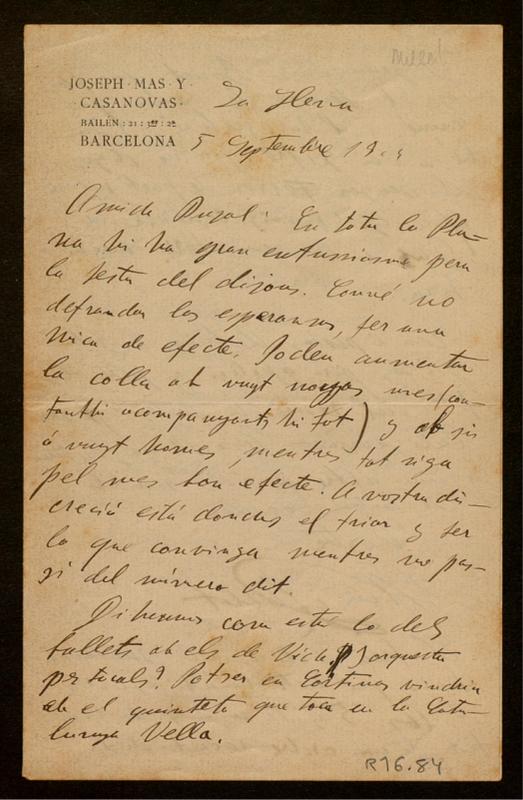 Millet
JOSEPH MAS Y
CASANOVAS
BAILÉN : 21 : 3er : 2a
BARCELONA
La Llena
5 Septembre 19
Amich Pujol: En tota la Pla-
na hi ha gran entussiasme pera
la festa del dijous. Convé no
defraudar las esperansas, fer una
mica de efecte. Poden aumentar
la colla ab vuyt noyas mes (con-
tanthi acompanyants hi tot) y ab sis
ó vuyt homes, mentres tot siga
pel mes bon efecte. A vostra dis-
creció está donchs el triar y fer
lo que convinga mentres no pas-
si del número dit.
Dihemos com está lo dels
ballets ab els de Vich. orquesta
per tocals? Potser en Cortinas vindria
ab el quinteto que toca en la Cata-
lunya Vella.
R16.84